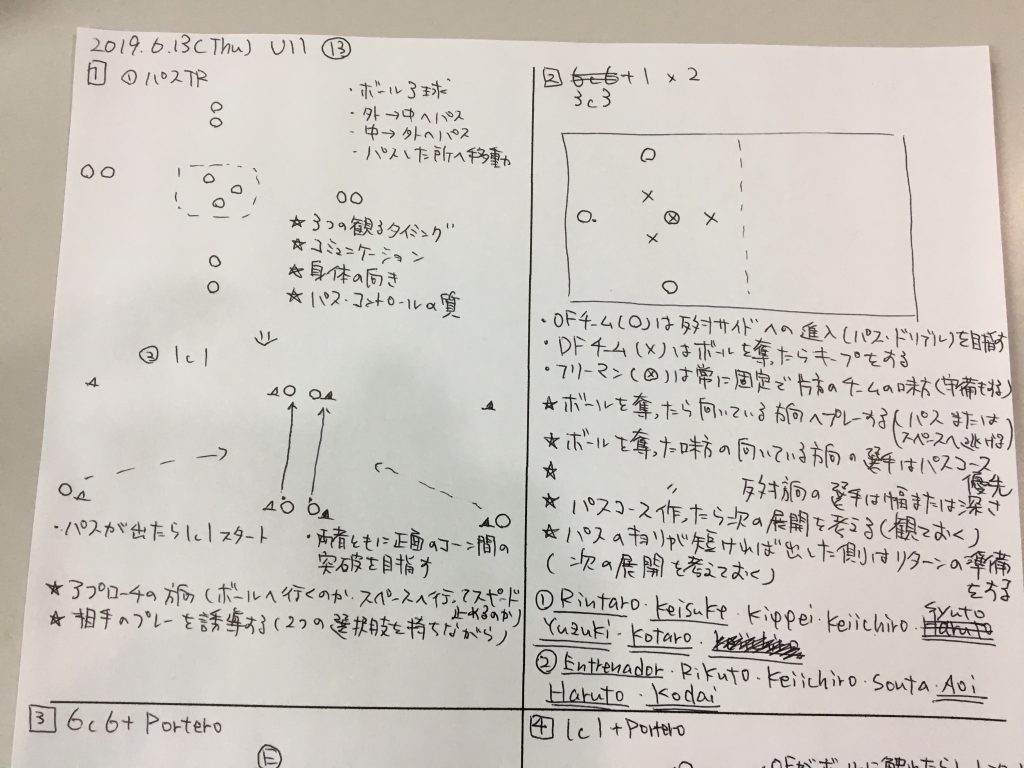 2019.6.13(Thu) U11 ⑬
1 ① パスTR
・ボール3球
・外→中へパス
・中→外へパス
・パスした所へ移動
★ 3つの観るタイミング
★ コミュニケーション
★ 身体の向き
★ パス・コントロールの質
② 1c1
・パスが出たら1c1スタート
・両者ともに正面のコーン間の
突破を目指す
★ アプローチの方向(ボールへ行くのか・スペースへ行ってスピード
止めるのか)
★ 相手のプレーを誘導する(2つの選択肢を持ちながら)
2 6c6+1×2
3c3
・OFチーム(○)は反対サイドへの進入(パス・ドリブル)を目指す
・DFチーム(×)はボールを奪ったらキープをする
・フリーマン(⊗)は常に固定で片方のチームの味方(守備もする)
★ ボールを奪ったら向いている方向へプレーする(パスまたは
スペースへ逃げる)
★ ボールを奪った味方の向いている方向の選手はパスコース
優先
★ 〃 反対方向の選手は幅または深さ
★ パスコース作ったら次の展開を考える(観ておく)
★ パスのキョリが短ければ出した側はリターンの準備
をする
(次の展開を考えておく)
① Rintaro・Keisuke・Kippei・Keiichiro・Syuto
Haruto
Yuzuki・Kotaro・
② Entrenador・Rikuto・Keiichiro・Souta・Aoi
Haruto・Kodai
3 6c6+Portero
E
4 1c1+Portero